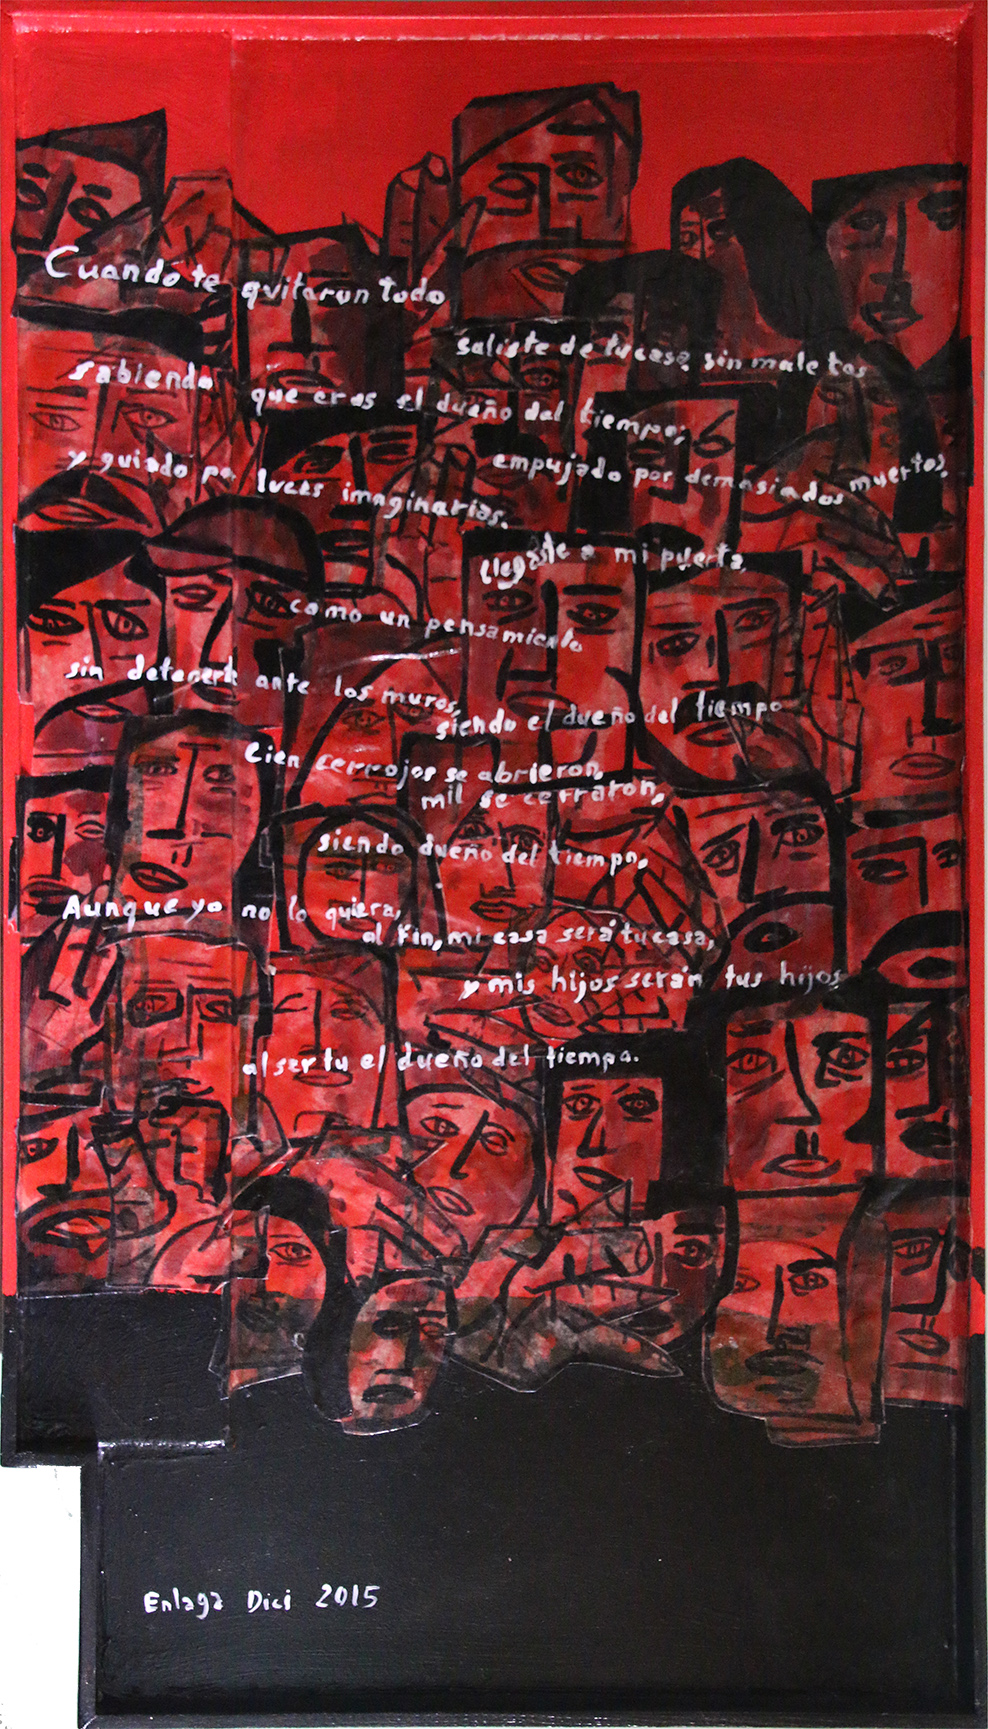 Cuando te quitaron todo
saliste de tu casa sin maletas
sabiendo que eras el dueño del tiempo,
empujado por demasiados muertos,
y guiado por luces imaginarias.
llegaste a mi puerta,
como un pensamiento
sin detenerte ante los muros,
siendo el dueño del tiempo
Cien cerrojos se abrieron,
mil se cerraron,
siendo dueño del tiempo,
Aunque yo no lo quiera,
al fin, mi casa será tu casa,
y mis hijos serán tus hijos
al ser tu el dueño del tiempo.
Enlaga Dici 2015